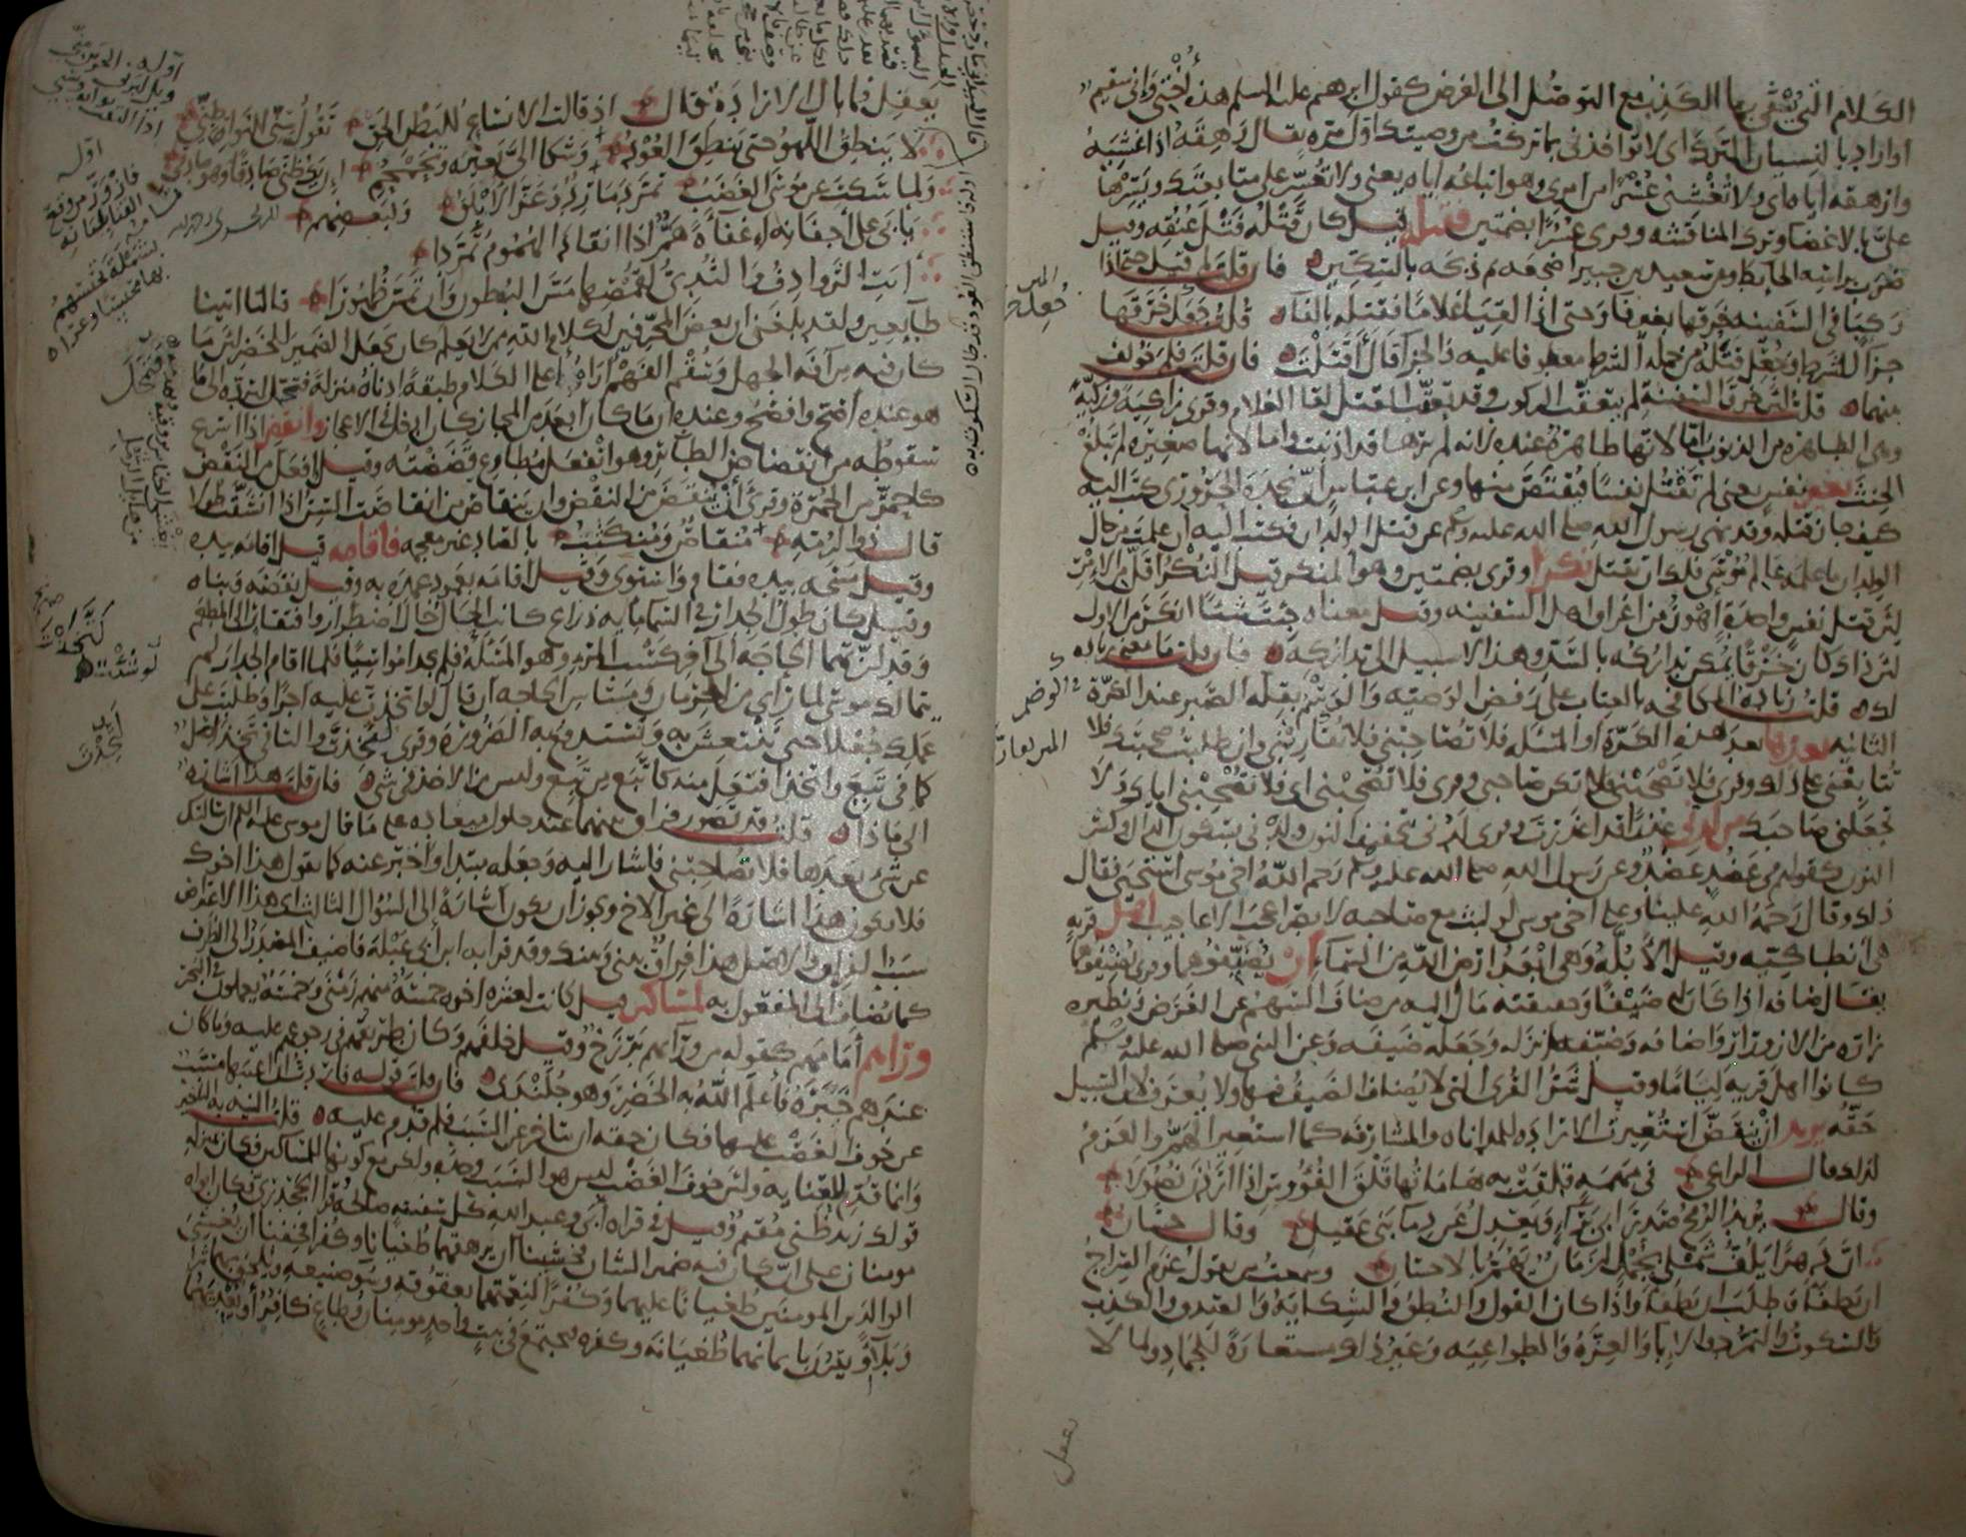 الكلام التي يتقى بها الكذب مع التوصل الى الغرض كقول ابرهم عليه السلم هذه أختي واني سقيم
او اراد بالنسيان الترك اى لا تواخذنى بما تركت من وصيتك اول مره يقال رهقه اذا غشيه
وارهقه اياه اى ولا تغشني عسرا من امرى وهو اتباعه اياه يعنى ولا تعسر على متابعتك ويسرها
على بالاغضا وترك المناقشه وقرى عسرا بضمتين فقتله قيل كان قتله فتل عنقه وقيل
ضرب براسه الحايط وعن سعيد بن جبير اضجعه ثم ذبحه بالسكين فان قلت لم قيل حتى اذا
ركبا فى السفينه خرقها بغير فا وحتى اذا لقيا غلاما فقتله بالفا قلت جعل خرقها
جزا للشرط وجعل قتله من جمله الشرط معطوفا عليه والجزا قال أقتلت فان قلت فلم خولف
بينهما قلت لان خرق السفينة لم يتعقب الركوب وقد تعقب القتل لقا الغلام وقرى زاكية وزكية
وهى الطاهره من الذنوب اما لانها طاهرة عنده لانه لم يرها قد اذنبت واما لانها صغيره لم تبلغ
الحنث بغير نفس يعنى لم تقتل نفسا فيقتص منها وعن ابن عباس ان نجدة الحروري كتب اليه
كيف جاز قتله وقد نهى رسول الله صلى الله عليه وسلم عن قتل الولدان فكتب اليه ان علمت من حال
الولدان ما علمه عالم موسى فلك ان تقتل نكرا وقرى بضمتين وهو المنكر وقيل النكر اقل من الامر
لان قتل نفس واحدة اهون من اغراق اهل السفينه وقيل معناه جئت شيئا انكر من الاول
لان ذلك كان خرقا يمكن تداركه بالسد وهذا لا سبيل الى تداركه فان قلت ما معنى زياده
لك قلت زياده المكافحه بالعتاب على رفض الوصيه والوسم بقلة الصبر عند الكرة
الثانيه بعدها بعد هذه الكرة او المسله فلا تصاحبني فلا تقاربني وان طلبت صحبتك فلا
تتابعنى على ذلك وقرى فلا تصحبنى فلا تكن صاحبى وقرى فلا تصحبنى اى فلا تصحبنى اياك ولا
تجعلنى صاحبك من لدنى عذرا قد اعذرت وقرى لدنى بتخفيف النون ولدنى بسكون الدال وكسر
النون كقولهم فى عضد عضد وعن رسول الله صلى الله عليه وسلم رحم الله أخى موسى استحيى فقال
ذلك وقال رحمة الله علينا وعلى اخى موسى لو لبث مع صاحبه لابصر اعجب الاعاجيب اهل قريه
هى انطاكيه وقيل الأبلة وهى ابعد ارض الله من السماء ان يضيفوهما وقرى يضيفوهما
يقال ضافه اذا كان له ضيفا وحقيقته مال اليه من ضاف السهم عن الغرض ونظيره
زاره من الازورار واضافه وضيفه انزله وجعله ضيفه وعن النبي صلى الله عليه وسلم
كانوا اهل قريه لياما وقيل شر القرى التى لا يضاف الضيف فيها ولا يعرف لابن السبيل
حقه يريد ان ينقض استعيرت الاراده للمداناه والمشارفه كما استعير الهم والعزم
لذلك قال الراعي فى مهمه قلقت به هاماتها قلق الفؤوس اذا اردن نصولا
وقال يريد الرمح صدر ابى براء ويعدل عن دما بني عقيل وقال حسان
ان دهرا يلف شملى بجمل لزمان يهم بالاحسان وسمعت من يقول عزم السراج
ان يطفأ وطلب ان يطفأ واذا كان القول والنطق والشكاية والصدق والكذب
والسكوت والتمرد والإبا والعزة والطواعيه وغير ذلك مستعارة للجماد ولما لا
يعقل
يعقل فما بال الارادة قال اذ قالت الانساع للبطن الحق تقول سنى للنواة طنى
لا ينطق اللهو حتى ينطق العود وشكا الى بعبره وتحمحم ان يك ظنى صادقا وهو صادقى
ولما سكت عن موسى الغضب تمرد مارد وعز الابلق ولبعضهم
يابى على أجفانه اغفاءه هم اذا انقاد الهموم تمردا
أبت الروادف والثدي لقمصها مس البطون وأن تمس ظهورا قالتا اتينا
طايعين ولقد بلغنى ان بعض المحرفين لكلام الله ممن لا يعلم كان يجعل الضمير للخضر لان ما
كان فيه من آفة الجهل وسقم الفهم أراه اعلى الكلام طبقة ادناه منزلة فتمحل ليرده الى ما
هو عنده اصح وافصح وعنده ان ما كان ابعد من المجاز كان ادخل فى الاعجاز وانقض اذا اسرع
سقوطه من انقضاض الطائر وهو انفعل مطاوع قضضته وقيل افعل من النقض
كاحمر من الحمرة وقرى أن ينقض من النقض وان ينقاص من انقاصت السن اذا انشقت طولا
قال ذو الرمه منقاص ومنكثب بالصاد غير معجمه فاقامه قيل اقامه بيده
وقيل مسحه بيده فقام واستوى وقيل اقامه بعمود عمده به وقيل نقضه وبناه
وقيل كان طول الجدار فى السما مايه ذراع كانت الحال حال اضطرار وافتقار الى المطعم
وقد لزتهما الحاجه الى آخر كسب المرء وهو المسئلة فلم يجدا مواسيا فلما اقام الجدار لم
يتمالك موسى لما راى من الحرمان ومساس الحاجه ان قال لو اتخذت عليه اجرا وطلبت على
عملك جعلا حتى ننتعش به ونستدفع به الضرورة وقرى لتخذت والتا فى تخذ اصل
كما فى تبع واتخذ افتعل منه كاتبع من تبع وليس من الاخذ فى شى فان قلت هذا اشاره
الى ماذا قلت قد تصور فراق بينهما عند حلول ميعاده على ما قال موسى عليه السلم ان سالتك
عن شى بعدها فلا تصاحبنى فاشار اليه وجعله مبتدا واخبر عنه كما يقول هذا اخوك
فلا يكون هذا اشارة الى غير الاخ ويجوز ان يكون اشارة الى السؤال الثالث اى هذا الاعتراض
سبب الفراق والاصل هذا فراق بينى وبينك وقد قرا به ابن ابى عبلة فاضيف المصدر الى الظرف
كما يضاف الى المفعول به لمساكين قيل كانت لعشره اخوه خمسة منهم زمنى وخمسة يعملون فى البحر
وراهم أمامهم كقوله من ورائهم برزخ وقيل خلفهم وكان طريقهم فى رجوعهم عليه وما كان
عندهم خبره فأعلم الله به الخضر وهو جلندى فان قلت قوله فاردت ان اعيبها مسبب
عن خوف الغصب عليها فكان حقه ان يتاخر عن السبب فلم قدم عليه قلت النيه به التاخير
وانما قدم للعنايه ولان خوف الغصب ليس هو السبب وحده ولكن مع كونها للمساكين فكان بمنزله
قولك زيد ظنى مقيم وقيل فى قراه أبى وعبد الله كل سفينه صالحة وقرا الجحدرى وكان ابواه
مومنان على ان كان فيه ضمير الشان فخشينا ان يرهقهما طغيانا وكفرا فخفنا ان يغشى
الوالدين المومنين طغيانا عليهما وكفرا لنعمتهما بعقوقه وسو صنيعه ويلحق بهما شرا
وبلاء او يقرن بايمانهما طغيانه وكفره فيجتمع فى بيت واحد مومنان وطاغ كافر أو يعديهما